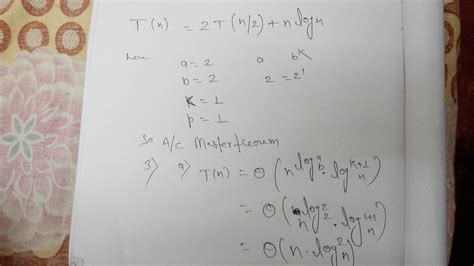 T(n) = 2T(n/2) + n log n
here a = 2 a b^k
b = 2 2 = 2^1
k = 1
p = 1
So A/C Masterfeoum
3) a) T(n) = Θ(n^log_b^a · log^{k+1} n)
= Θ(n^log_2^2 · log^{1+1} n)
= Θ(n · log^2 n)